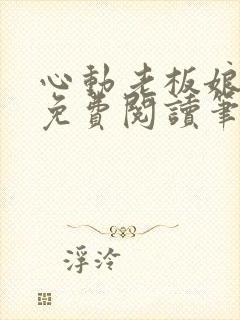 心動老板娘
免費閱讀筆
浮泠